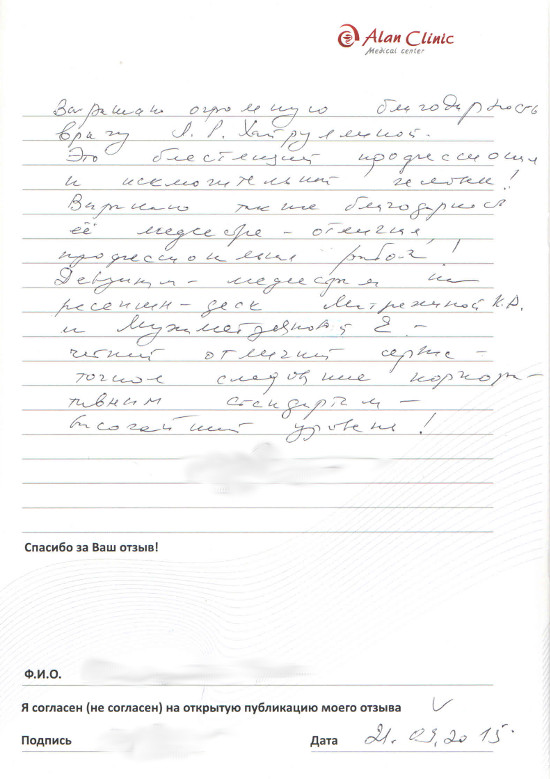 Alan Clinic
Medical center
Выражаю огромную благодарность
врачу Л. Р. Хайруллиной.
Это блестящий профессионал
и исключительный человек!
Выражаю также благодарность
её медсестре - отличная,
профессиональная работа!
Девушки - медсестры на
ресепшн - деск Митрехиной К.В.
и Мухаметзяновой Е. -
четкий отличный сервис -
точное следование корпора-
тивным стандартам -
высочайший уровень!
Спасибо за Ваш отзыв!
Ф.И.О.
Я согласен (не согласен) на открытую публикацию моего отзыва V
Подпись Дата 21.09.2015.